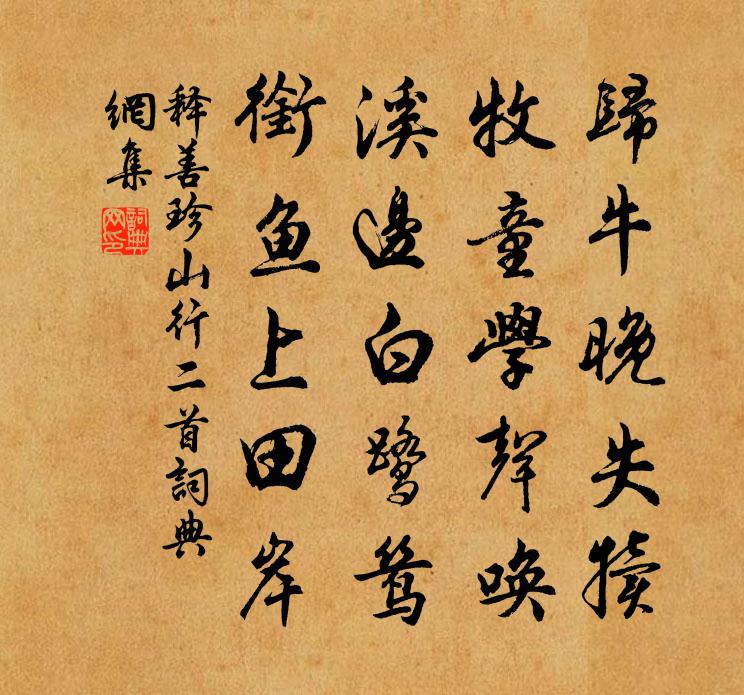 歸牛晚失犢
牧童學聲喚
溪邊白鷺驚
銜鱼上田岸
释善珍山行二首詞典
網集
詞典
网印